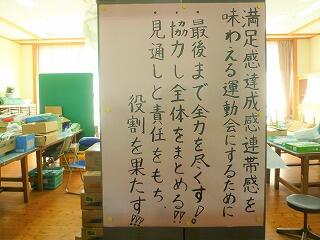 満足感・達成感・連帯感を
味わえる運動会にするために
・最後まで全力を尽くす!。
・協力し全体をまとめる!!
・見通しと責任をもち、
役割を果たす!!!